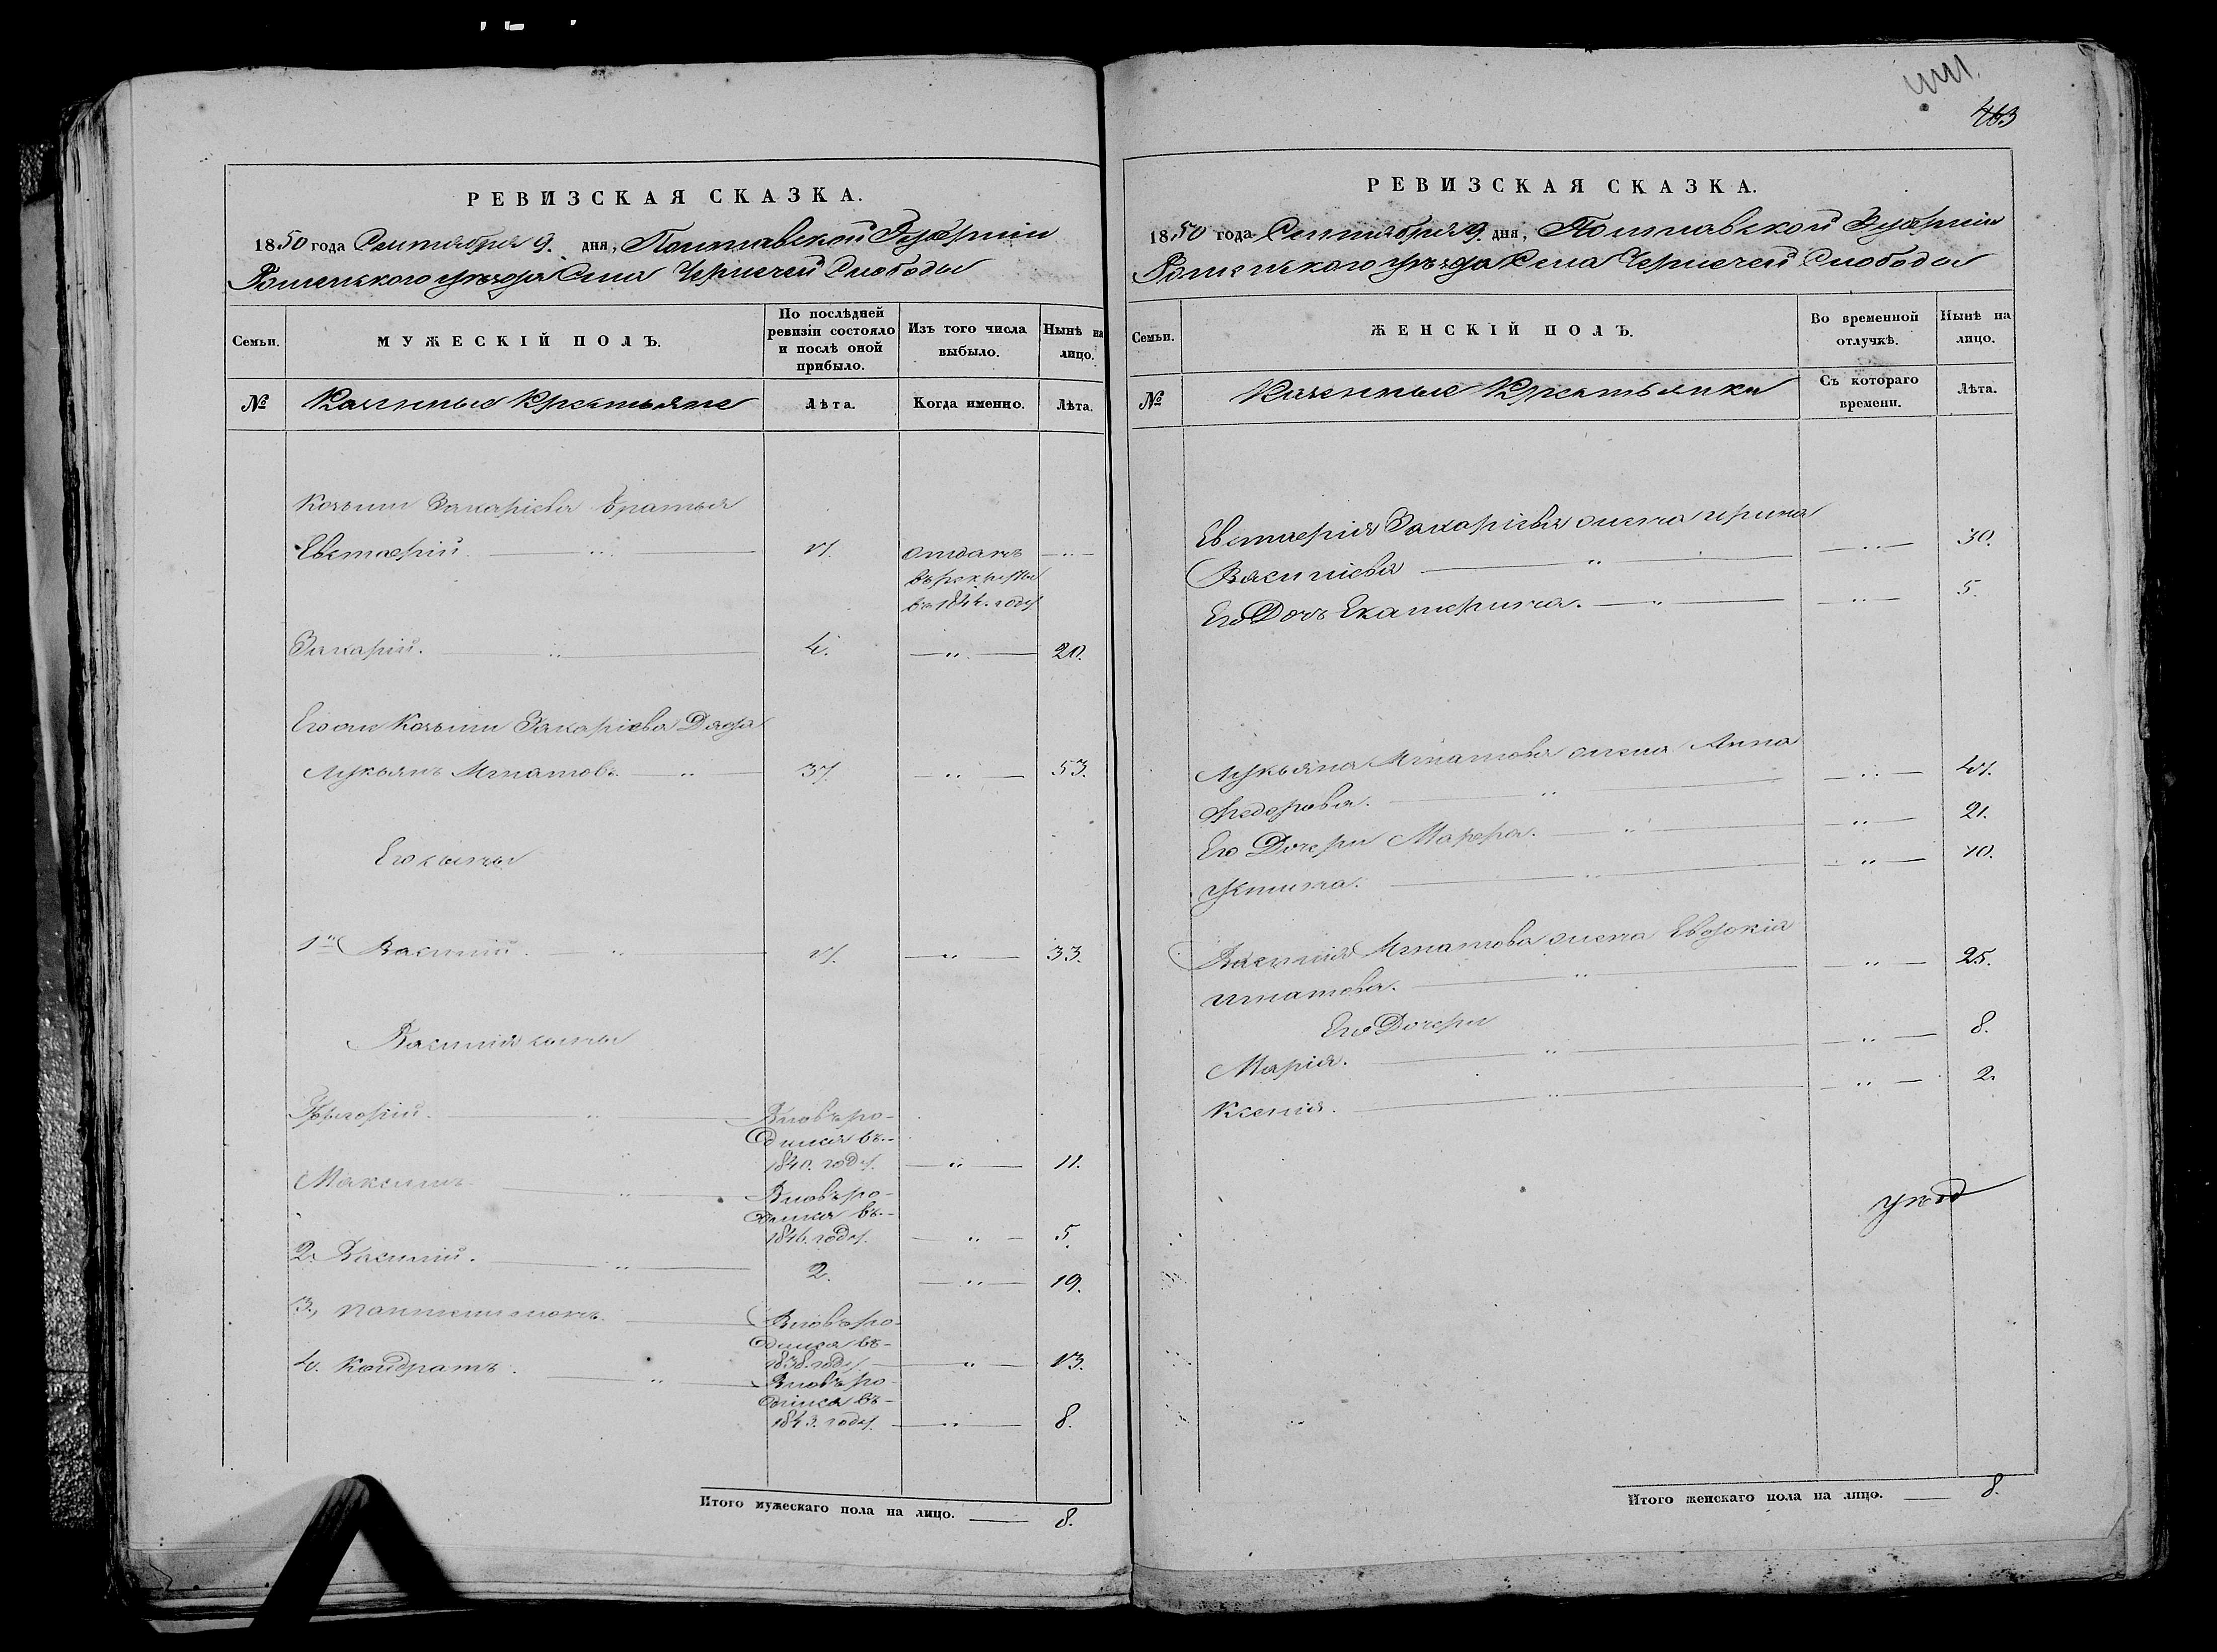 463
РЕВИЗСКАЯ СКАЗКА.
1850 года Сентября 9. дня, Полтавской Губерніи
Роменского уѣзда Села Чернечей Слободы
Семьи.
МУЖЕСКІЙ ПОЛЪ.
По послѣдней ревизіи состояло и послѣ оной прибыло.
Изъ того числа выбыло.
Нынѣ на лицо.
№
Казенные Крестьяне
Лѣта.
Когда именно.
Лѣта.
Козьми Захаріева братья
Евстафій. — " — отданъ — " —
въ рекруты
годy
Захарій. — " — 4. — " — 20.
Его же Козьми Захаріева Дядя
Лукьянъ Игнатовъ — " — 37. — " — 53.
Его сыны
1й Василій. — " — — " — 33.
Василія сыны
Григорій. — " — Вновь ро-
дился въ-
1840. году. — " — 11.
Максимъ — " — Вновь ро-
дился въ-
1846. году. — " — 5.
2. Василій. — " — 2. — " — 19.
3., Пантелимонъ. — Вновь ро-
дился въ-
1838. году. — " — 13.
4. Кондратъ. — " — Вновь ро-
дился въ-
1843. году. — " — 8.
Итого мужескаго пола на лицо. — 8.
РЕВИЗСКАЯ СКАЗКА.
1850 года Сентября 9. дня, Полтавской Губерніи
Роменского уѣзда Села Чернечей Слободы
Семьи.
ЖЕНСКІЙ ПОЛЪ.
Во временной отлучкѣ.
Нынѣ на лицо.
№
Казенные Крестьянки
Съ котораго времени.
Лѣта.
Евстафія Захаріева жена Ирина
Василіева — " — — " — 30.
Его Дочь Екатерина. — " — — " — 5.
Лукьяна Игнатова жена Анна
Федорова. — " — — " —
Его Дочери Марфа. — " — — " — 21.
Устина. — " — — " — 10.
Василія Игнатова жена Евдокія
Игнатова. — " — — " — 25.
Его Дочери
Марія. — " — — " — 8.
Ксенія. — " — — " — 2.
Итого женскаго пола на лицо. — 8.